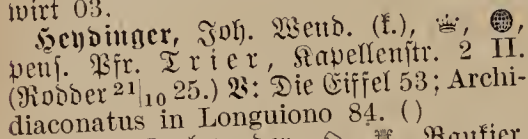 wirt 03.
Heydinger, Joh. Wend. (k.),
pens. Pfr. Trier, Kapellenstr. 2 II.
(Rodder 21|10 25.) V: Die Eiffel 53; Archi-
diaconatus in Longuiono 84. ()
Bankier